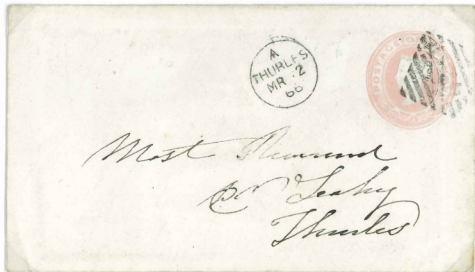 A
THURLES
MR 2
66
POSTAGE
Most Reverend
Dr Leahy
Thurles